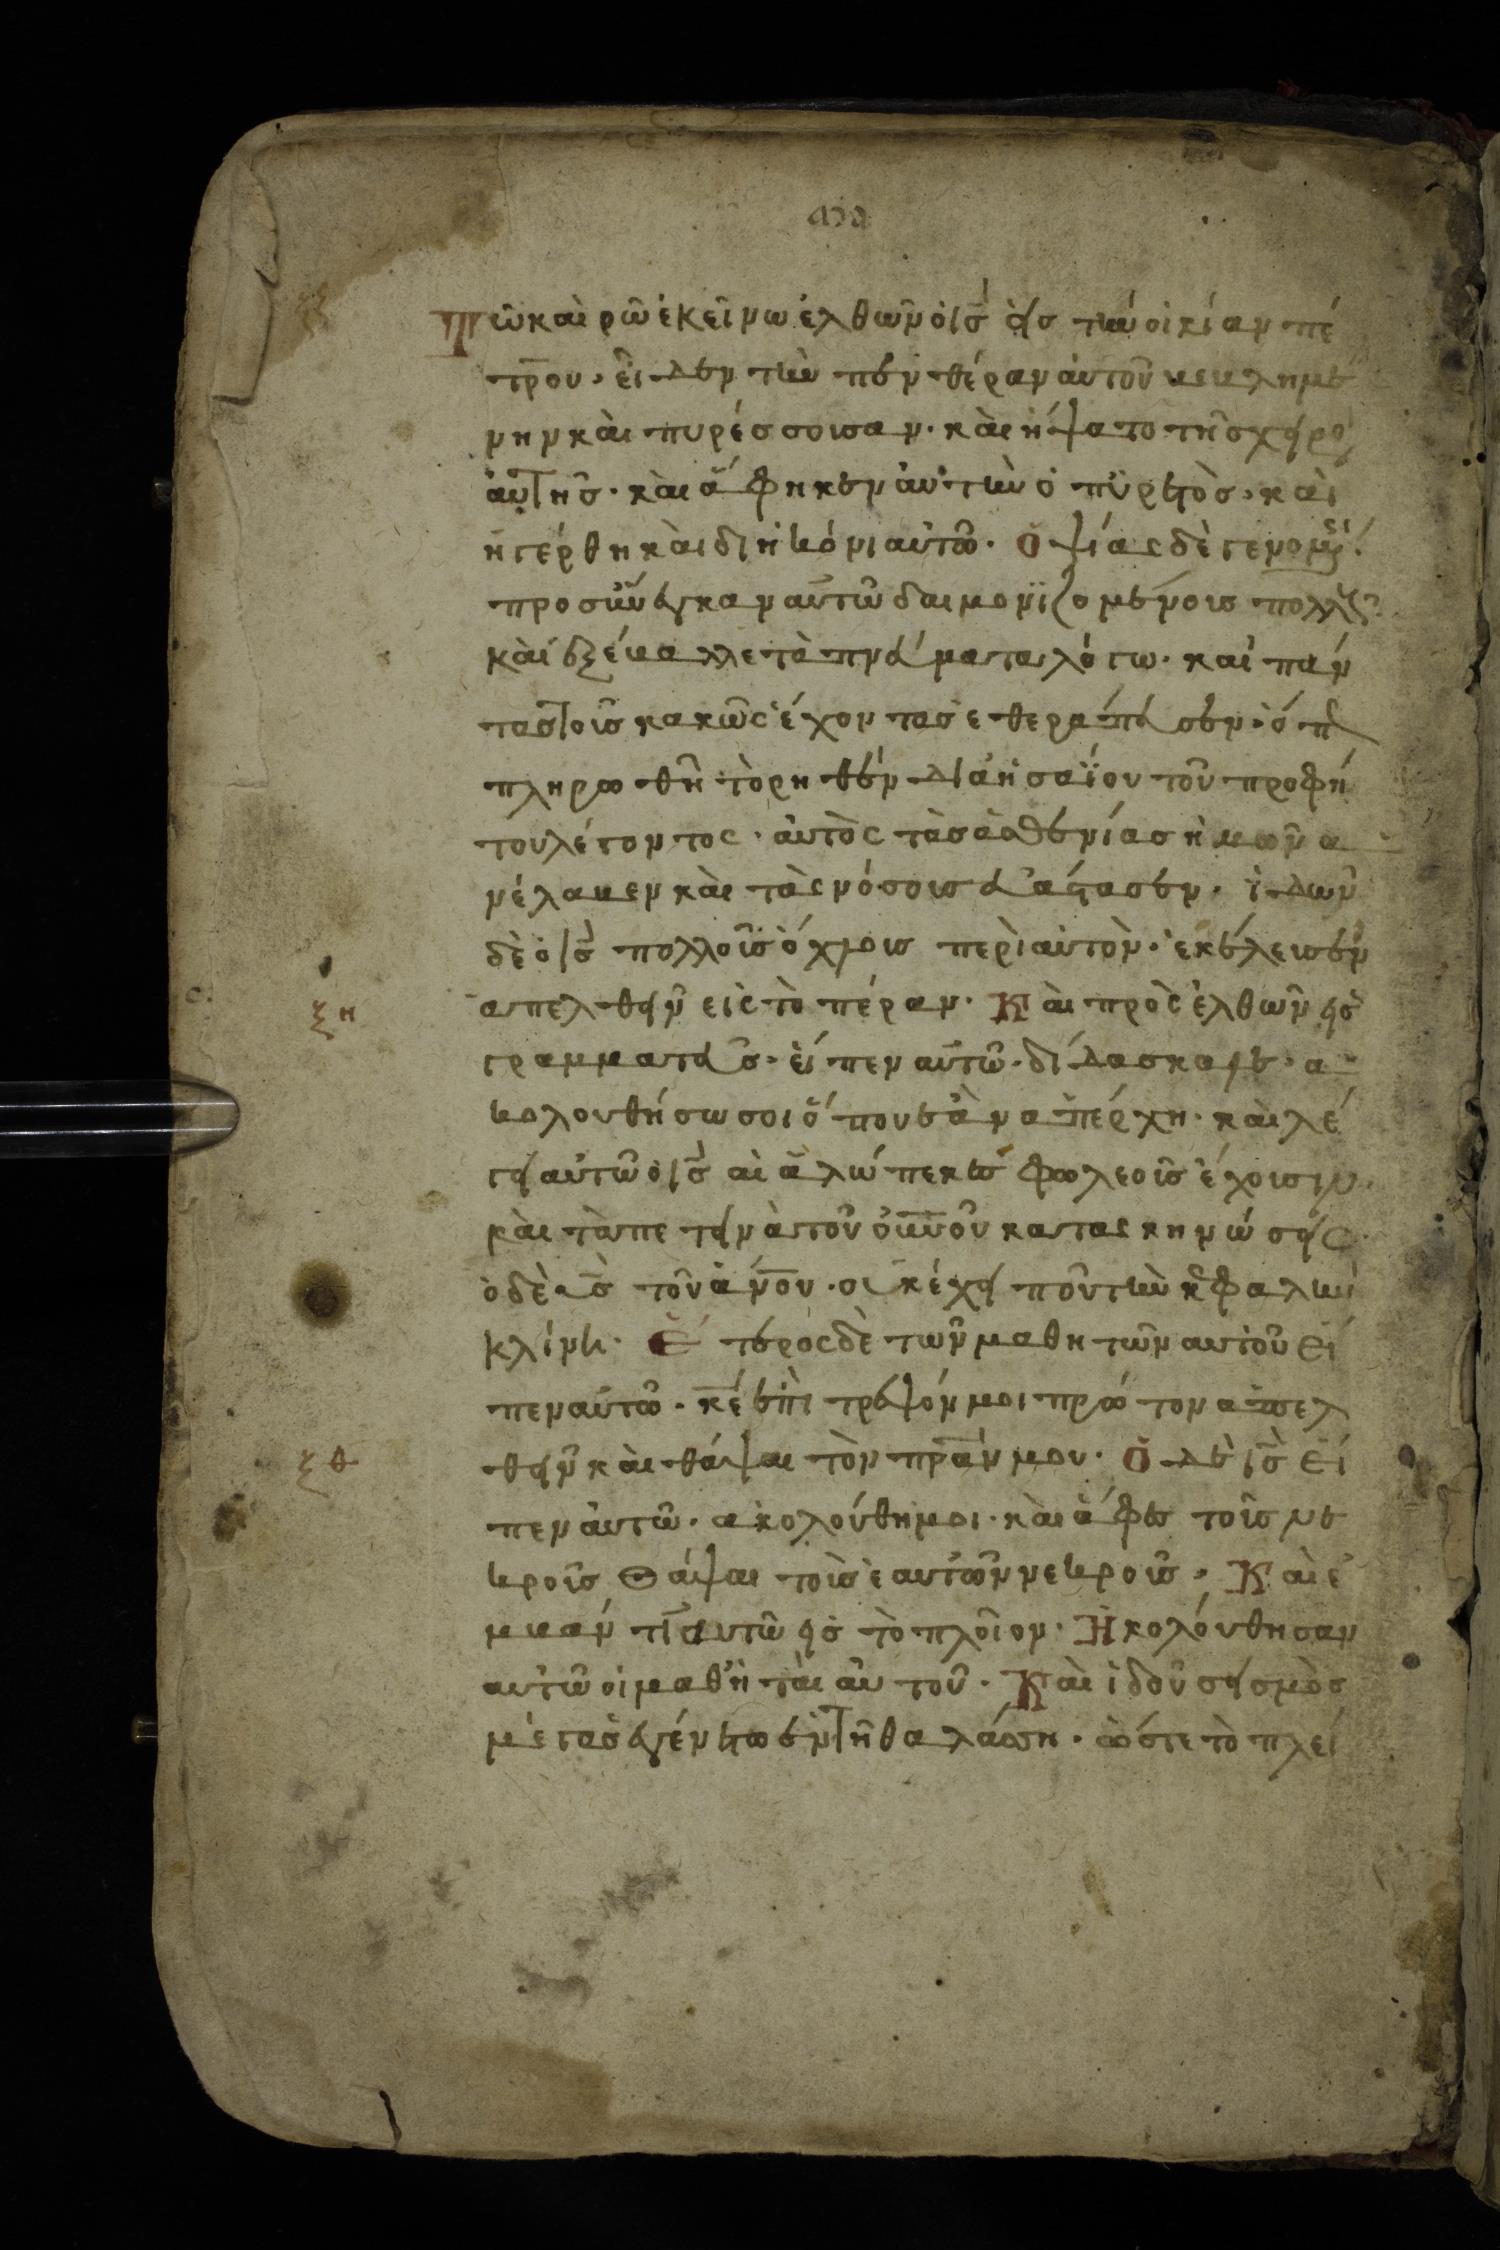 Τῶ καὶρῶ ἐκεῖνω ἐλθὼν ὁ ις̅ εἰς τὴν οἰκίαν πέ
τρου· εἶδεν τὴν πενθέραν ἀυτοῦ κεκλημε
νην καὶ πυρέσσουσαν· καὶ ἥψατο τῆς χειρὸς
ἀυτῆς· καὶ ἄφηκεν ἀυτὴν ὁ πύρετὸς· καὶ
ἠγέρθη καὶ διηκόνι αὐτῶ· Ὀψίας δὲ γενομένης
προσἤνεγκαν αὐτῶ δαιμονϊζομένους πολλοὺς
καὶ ἐξέκαλλε τὰ πνεύματα λόγω· καὶ πάν
τας τοῖς κακῶς ἔχοντας ἐθεράπευσεν· ὅπως
πληρωθῆ τὸ ρηθέν δια ἠσαϊου τοῦ προφή
του λέγοντος· ἀυτὸς τὰς ἀσθενίας ἡμῶν α
νέλακεν καὶ τὰς νόσους εὐάστασεν· ἰδὼν
δὲ ὁ ις̅ πολλοῖς ὄχλους περὶ αὐτὸν· ἐκέλευσεν
απελθεῖν εἰς τὸ πέραν· Καὶ πρὸςἐλθὼν εἷς
ξη
γραμματεῦς· εἶπεν αὐτῶ· δίδασκαλε· α
κολουθήσω σοι ὅπου ἐὰν απέρχη· καὶ λέ
γει αὐτῶ ὁ ις̅ αἱ ἀλώπεκες φωλεοῖς ἔχουσιν
καὶ τὰ πετεινὰ τοῦ οὐν̅οῦ κατασκηνώσεις
ὁ δὲ υς̅ τοῦ αν̅ου· οὐκ ἔχει ποῦ τὴν κεφαλὴν
κλίνη· Ἕτερος δὲ τῶν μαθητῶν αυτοῦ εἶ
πεν αὐτῶ· κε̅ ἐπὶτρεψόν μοι πρῶτον απελ
θεῖν καὶ θάψαι τὸν πρ̅αν μου· Ὁ δὲ ις̅ εἶ
ξθ
πεν ἀυτῶ· ακολούθη μοι· καὶ ἄφες τοῖς νε
κροῖς θάψαι τοὶς ἑαυτῶν νεκροῖς· Καὶ ἐ
μκάντι αυτῶ εἰς τὸ πλοῖον· Ἠκολούθησαν
αυτῶ οἱ μαθἠταὶ ἀυτοῦ· Καὶ ἰδοῦ σεισμὸς
μέγας ἐγένετω ἐν τῆ θαλάσση· ὥστε τὸ πλεί